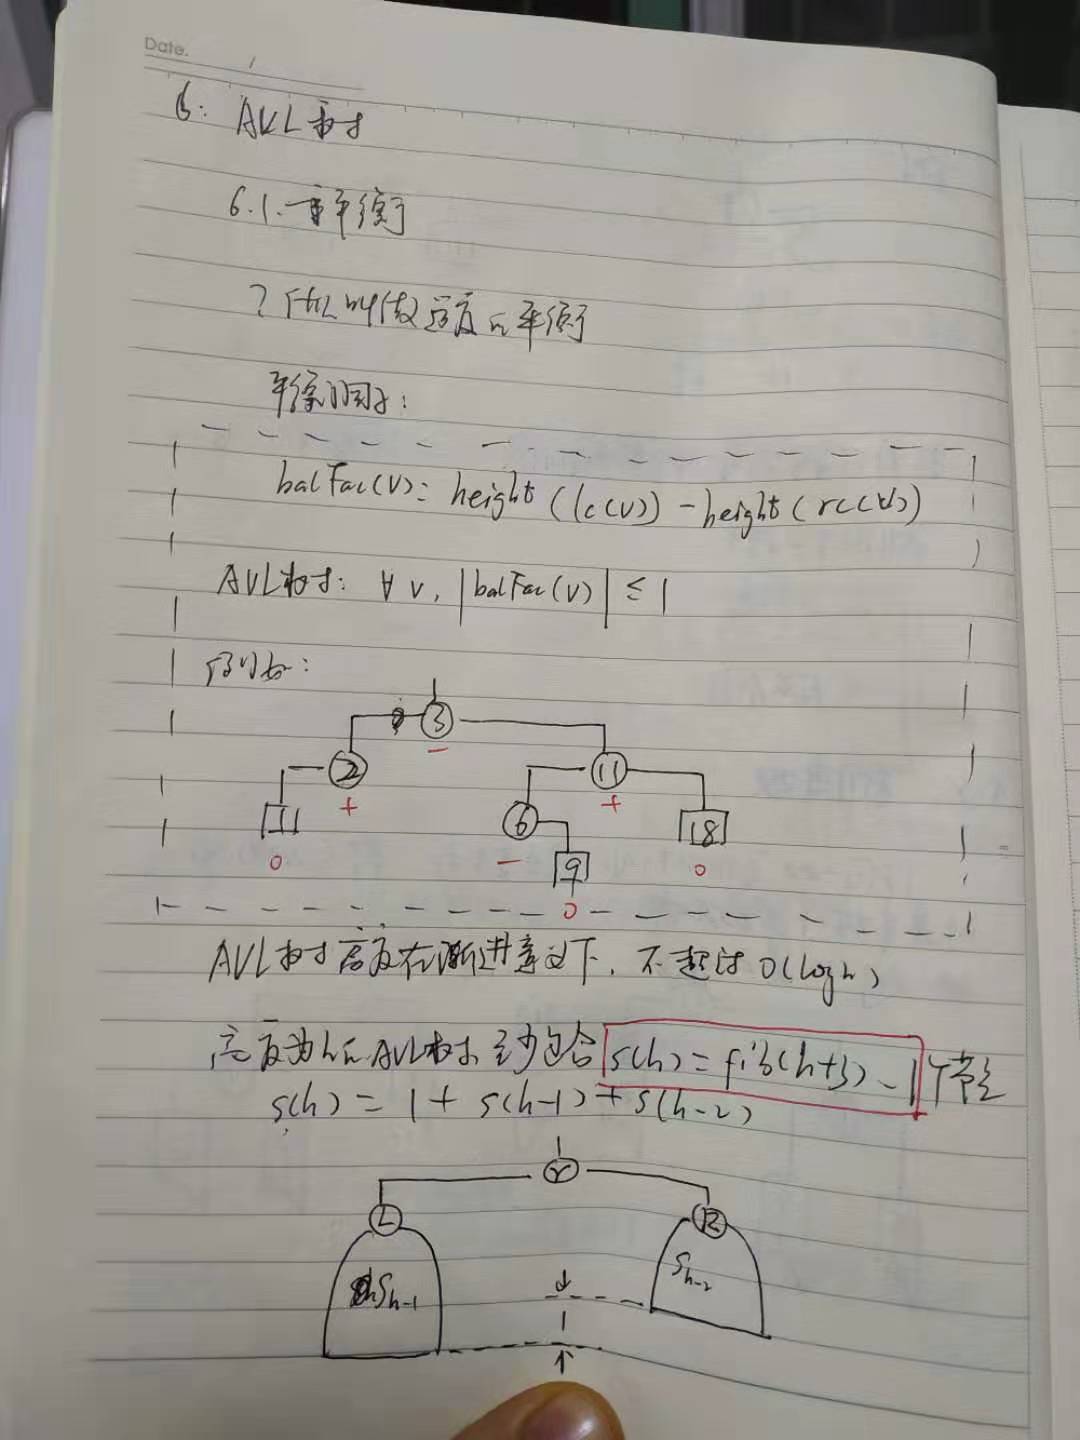 Date. /
6: AVL树
6.1. 重平衡
? 什么叫做适度的平衡
平衡因子:
balFac(v): height (lc(v)) - height (rc(v))
AVL树: ∀ v, |balFac(v)| ≤ 1
例如:
3
-
2 11
+ +
11 6 18
0 - 0
9
0
AVL树高度在渐进意义下, 不超过O(logn)
高度为h的AVL树至少包含 S(h) = fib(h+3) - 1个节点
S(h) = 1 + S(h-1) + S(h-2)
r
L R
Sh-1 Sh-2
1